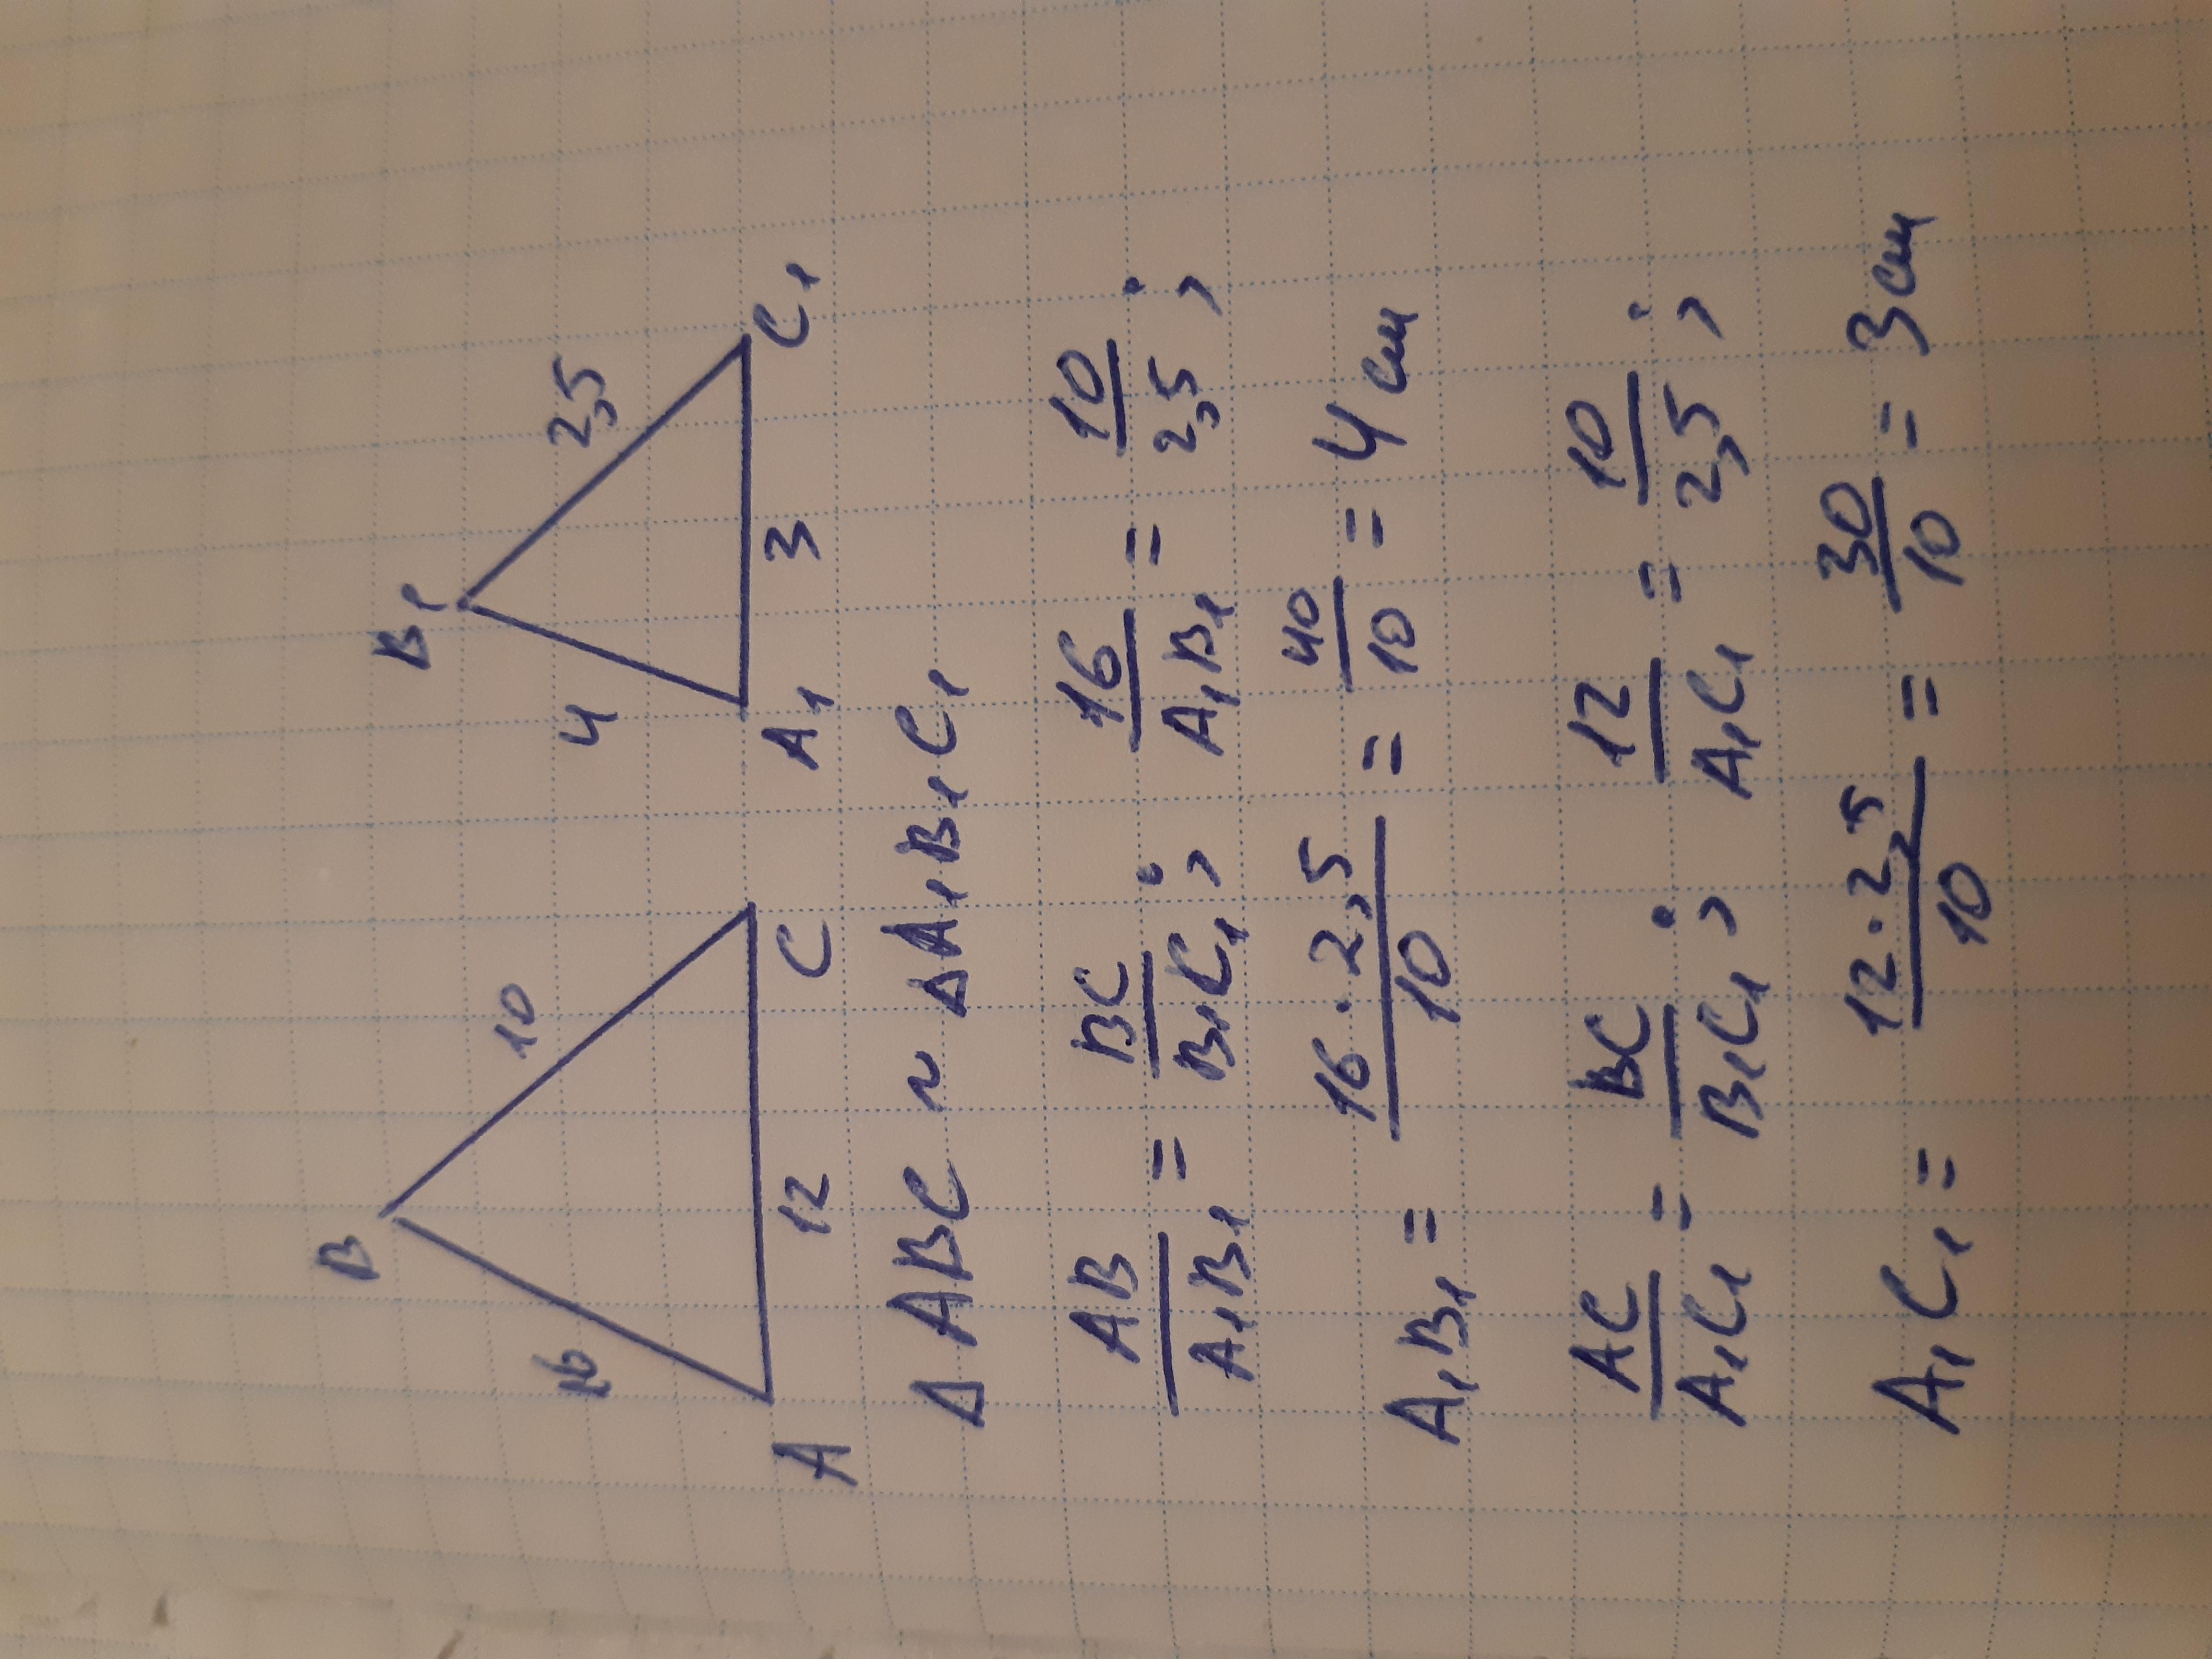 B B₁
16 10 4 2,5
A 12 C A₁ 3 C₁
Δ ABC ~ ΔA₁B₁C₁
AB/A₁B₁ = BC/B₁C₁; 16/A₁B₁ = 10/2,5;
A₁B₁ = 16·2,5/10 = 40/10 = 4 см
AC/A₁C₁ = BC/B₁C₁; 12/A₁C₁ = 10/2,5;
A₁C₁ = 12·2,5/10 = 30/10 = 3 см